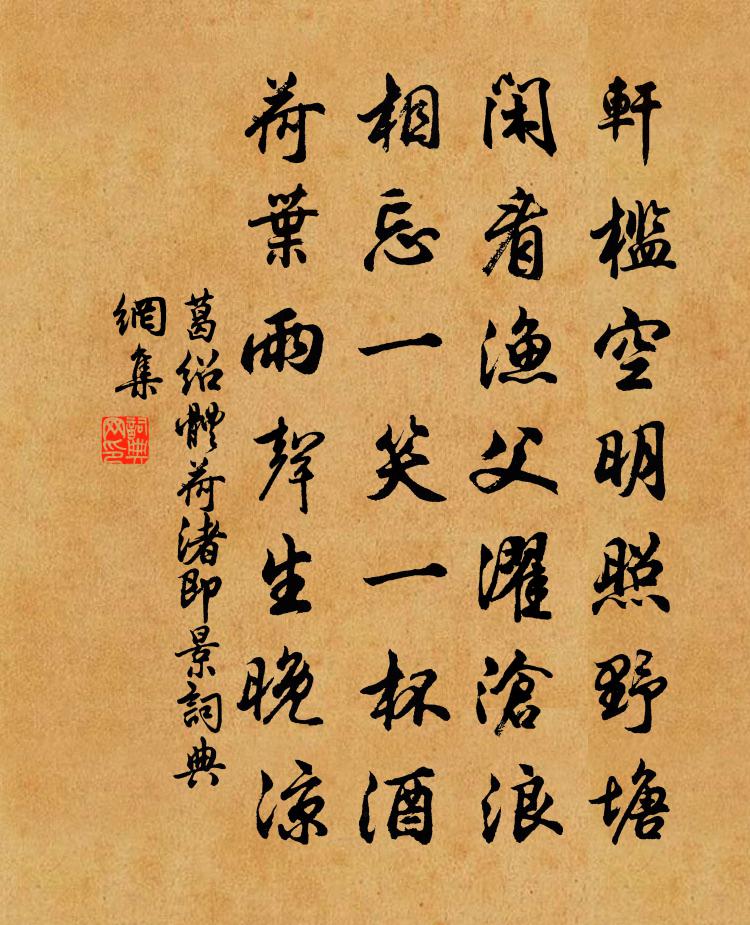 軒檻空明照野塘
閑看漁父濯滄浪
相忘一笑一杯酒
荷葉雨聲生晚涼
葛紹體荷渚即景詞典
網集
詞典
网印